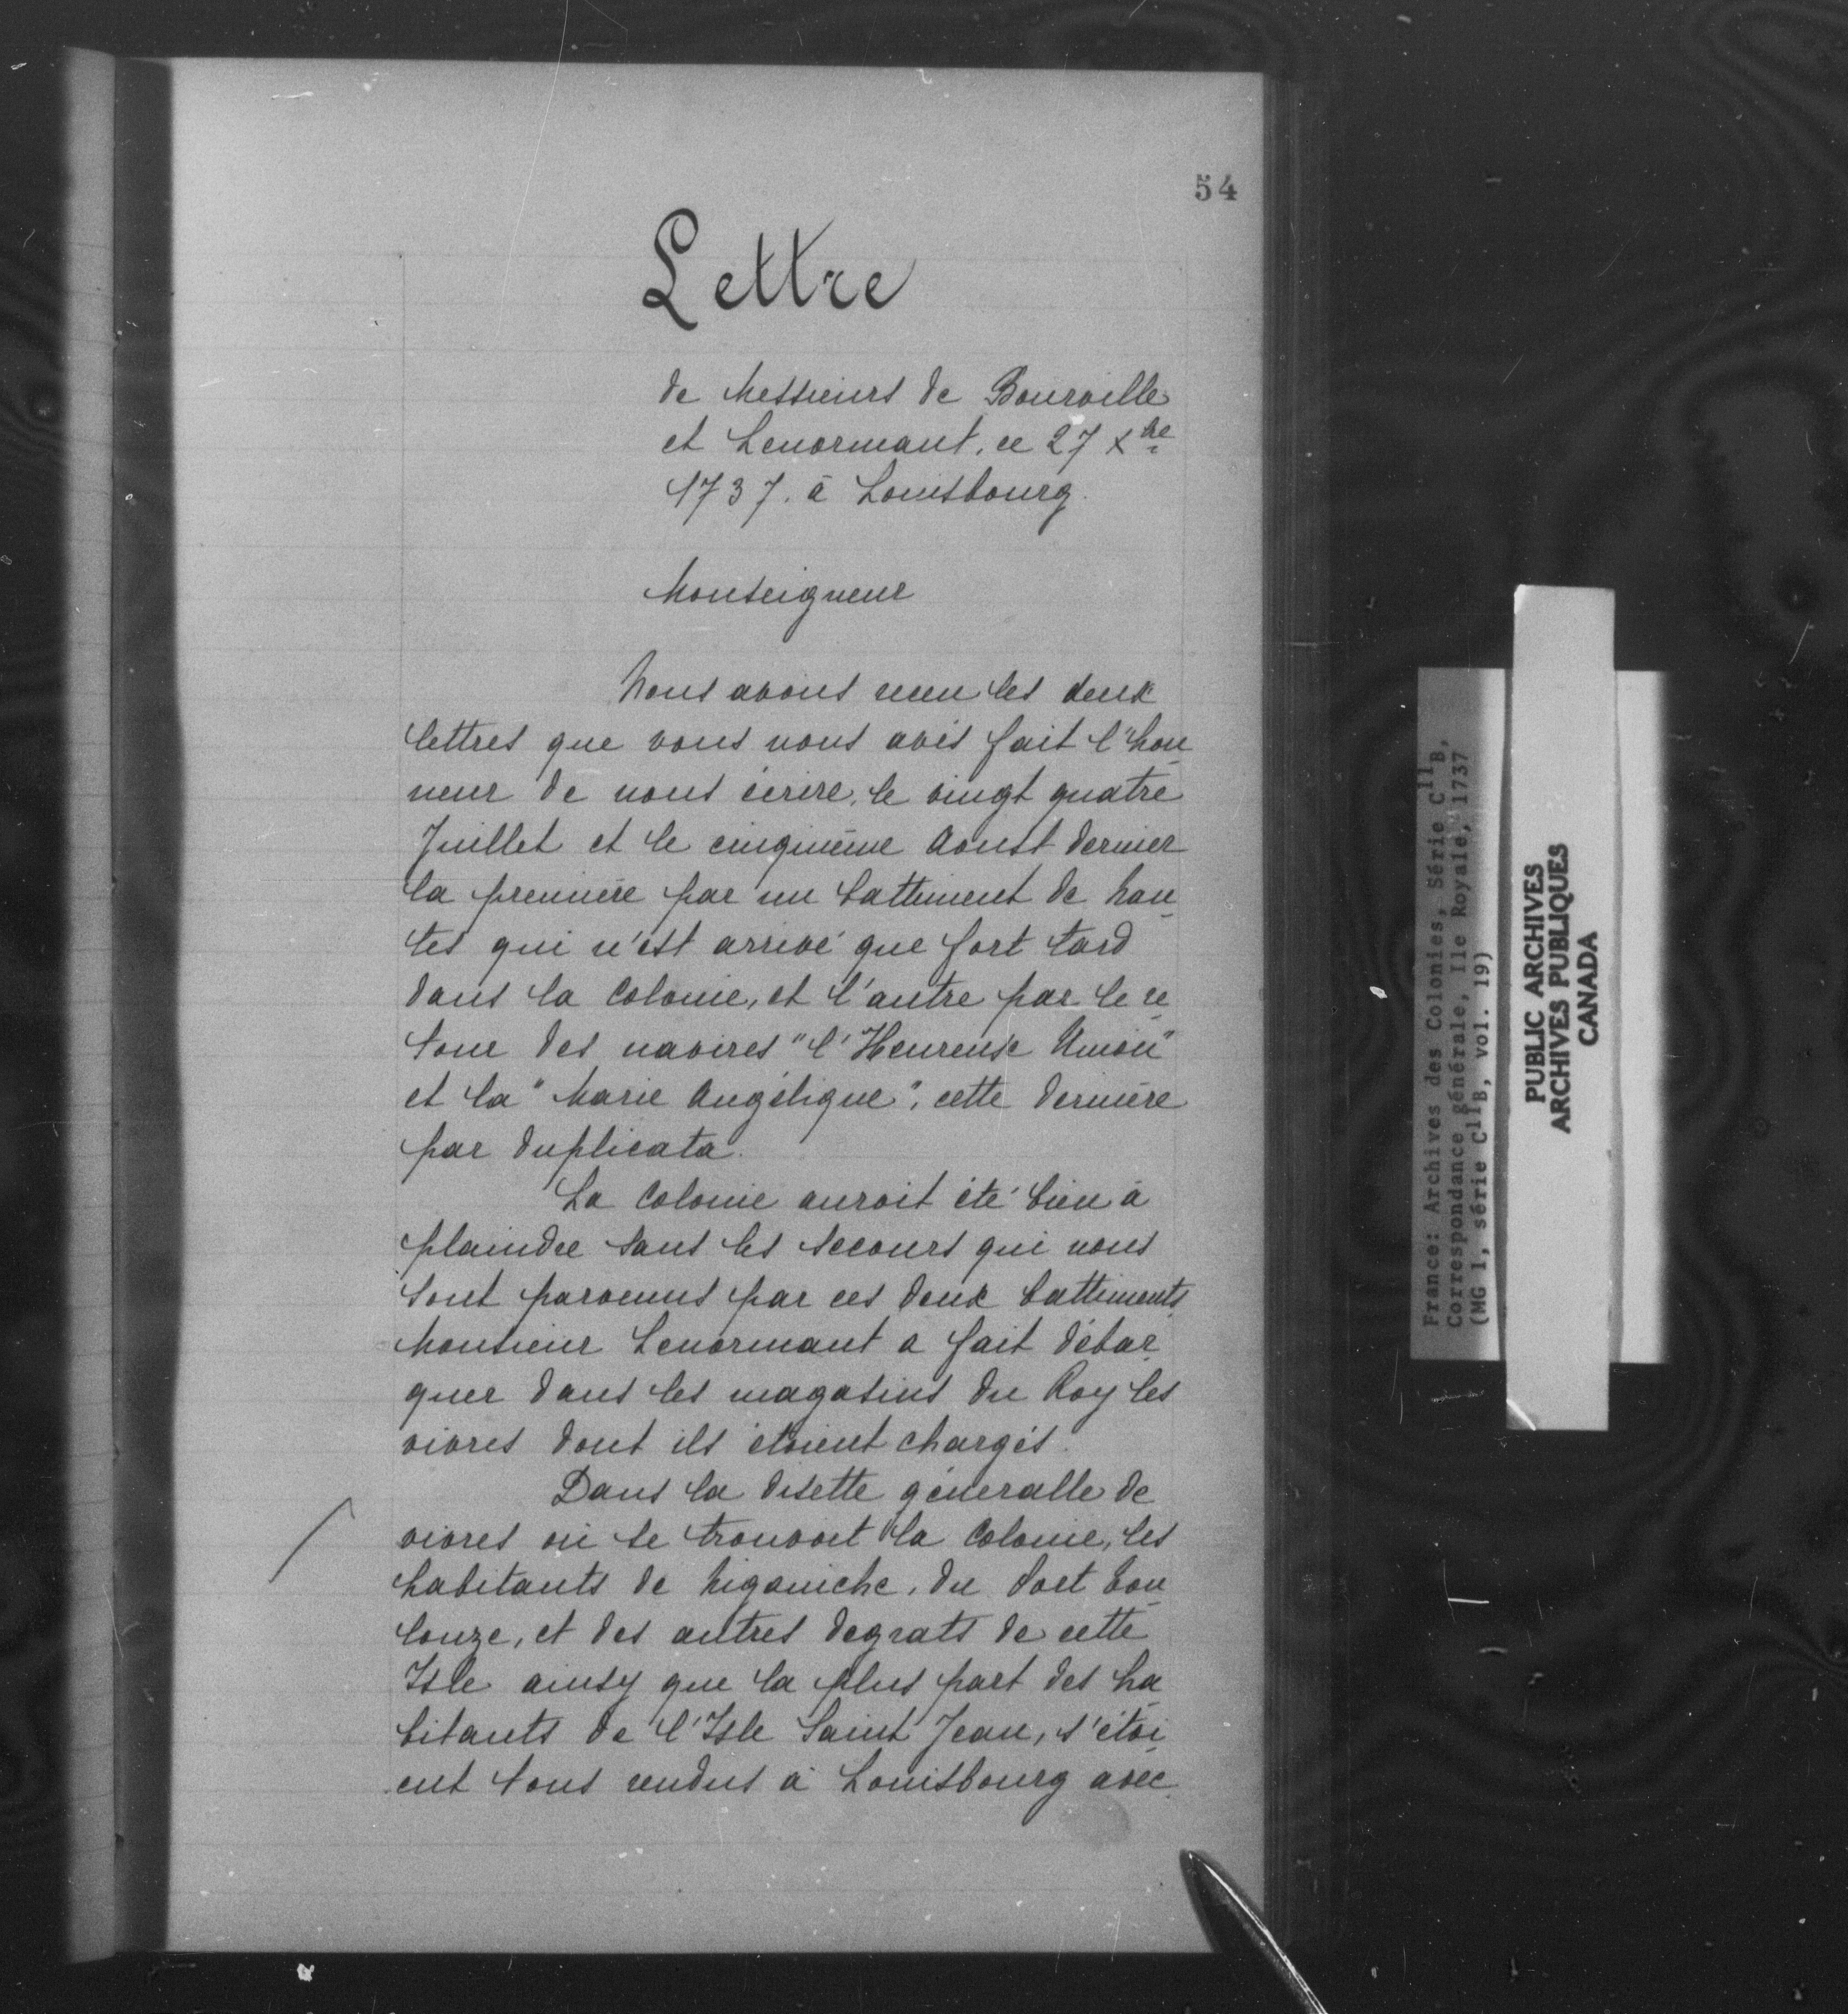 54
Lettre
de Messieurs de Bourville
et Lenormant, ce 27 Xbre
1737. à Louisbourg.
Monseigneur
Nous avons receu les deux
lettres que vous nous avés fait l'hon
neur de nous écrire, le vingt quatre
Juillet et le cinquième Aoust dernier
la première par un battiment de Nan
tes qui n'est arrivé que fort tard
dans la Colonie, et l'autre par le re
tour des navires "l'Heureuse Union"
et la "Marie Angélique", cette dernière
par duplicata.
La Colonie auroit été bien à
plaindre sans les secours qui nous
sont parvenus par ces deux battiments
Monsieur Lenormant a fait débar
quer dans les magasins du Roy les
vivres dont ils étoient chargés.
Dans la disette généralle de
vivres où se trouvoit la Colonie, les
habitants de Niganiche, du Port Tou
louze, et des autres degrats de cette
Isle ainsy que la plus part des ha
bitants de l'Isle Saint Jean, s'étoi
ent tous rendus à Louisbourg avec
France: Archives des Colonies, Série C11B,
Correspondance générale, Ile Royale, 1737
(MG 1, série C11B, vol. 19)
PUBLIC ARCHIVES
ARCHIVES PUBLIQUES
CANADA